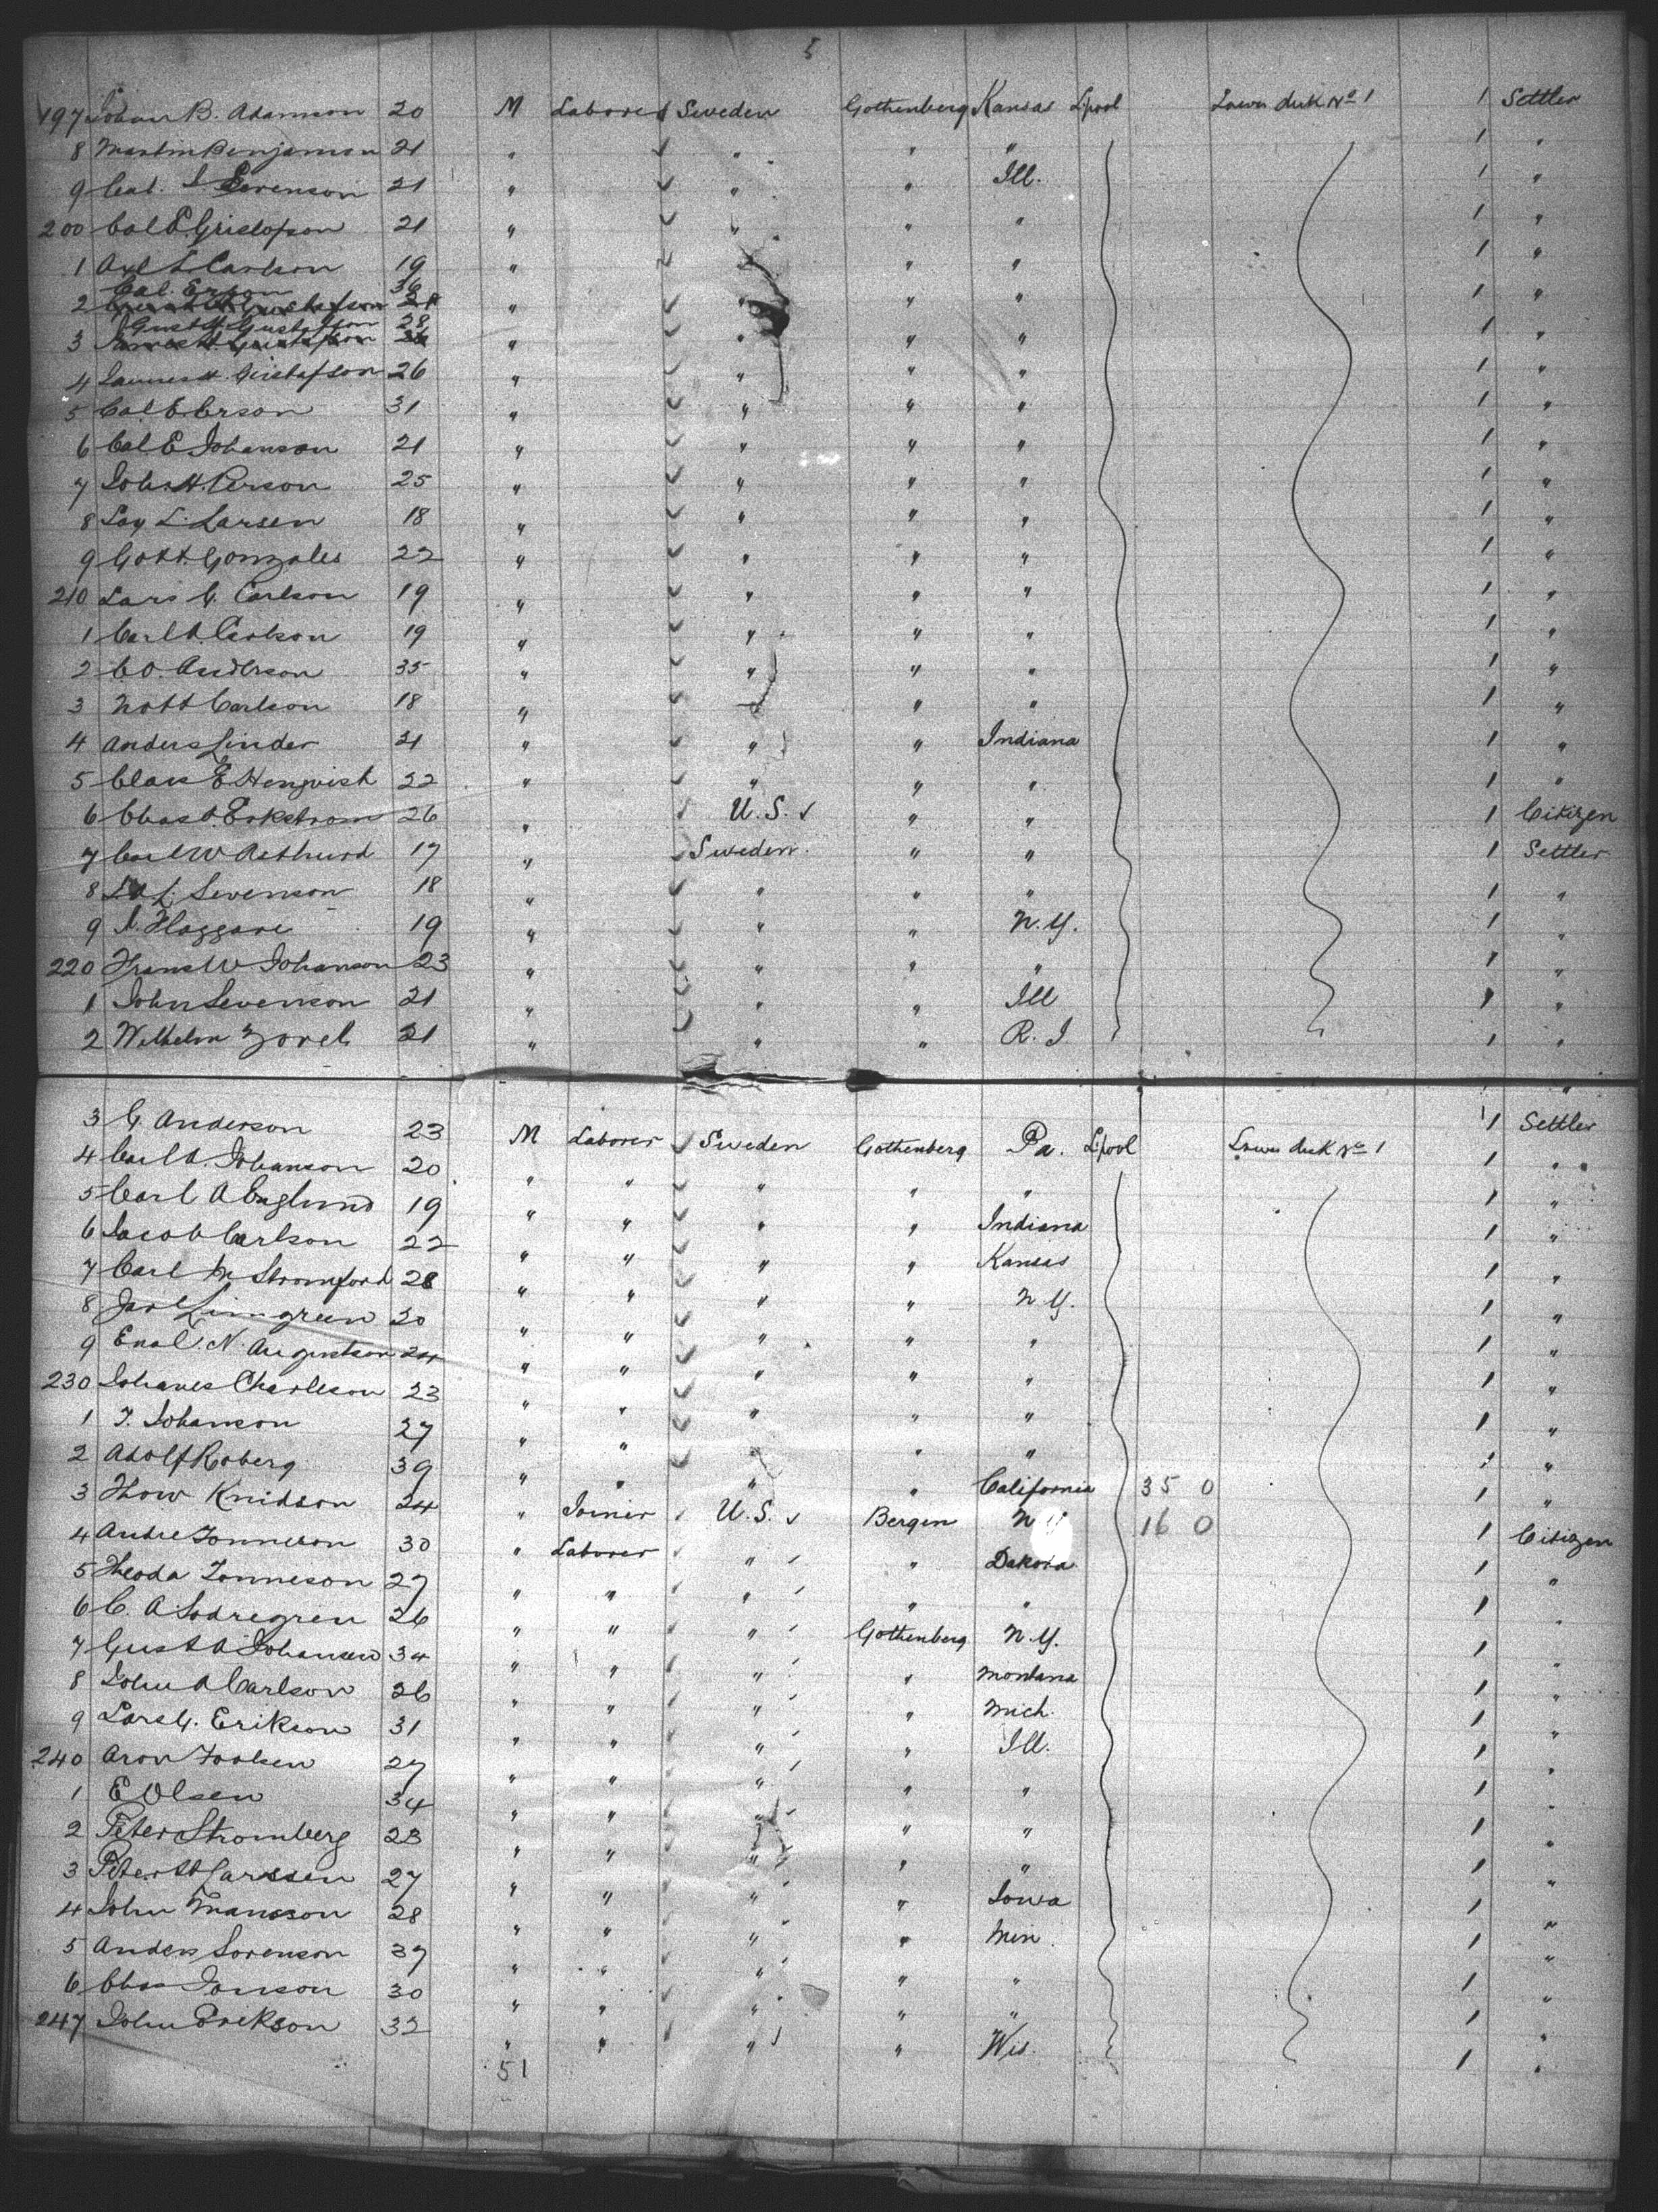 5
197 Johan B. Adamson 20 M Laborer Sweden Gothenberg Kansas L'pool Lower deck No 1 1 Settler
8 Martin Benjamson 21 " " " " 1 "
9 Carl. I Sevenson 21 " " " Ill. 1 "
200 Cal E. Grislofson 21 " " " " 1 "
1 Axl L Carlson 19 " " " " 1 "
Cal. Erson 36
2 " " " " 1 "
Gust A. Gustafson 28
3 " " " " 1 "
4 Gustafson 26 " " " " 1 "
5 Cal E. Erson 31 " " " " 1 "
6 Cal E Johanson 21 " " " " 1 "
7 Joh. H. Person 25 " " " " 1 "
8 L. Larsen 18 " " " " 1 "
9 Gott. Gonzales 22 " " " " 1 "
210 Lars G. Carlson 19 " " " " 1 "
1 Carl A. Carlson 19 " " " " 1 "
2 C.O. Anderson 35 " " " " 1 "
3 Nott Carlson 18 " " " " 1 "
4 Anders Linder 21 " " " Indiana 1 "
5 Claus E. Henqvish 22 " " " " 1 "
6 Chas A. Eckstrom 26 " U.S. " " 1 Citizen
7 Carl W 17 " Sweden. " " 1 Settler
8 L. Sevenson 18 " " " " 1 "
9 A. Haggare 19 " " " N.Y. 1 "
220 Frans W Johanson 23 " " " " 1 "
1 John Sevenson 21 " " " Ill 1 "
2 Wilhelm Zorel 21 " " " R. I. 1 "
3 G. Anderson 23 M Laborer Sweden Gothenberg Pa. L'pool Lower deck No 1 1 Settler
4 Carl A. Johanson 20 " " " " " 1 "
5 Carl A Englund 19 " " " " Indiana 1 "
6 Jacob Carlson 22 " " " " Kansas 1 "
7 Carl M Stromford 28 " " " " N Y. 1 "
8 Limgreen 20 " " " " " 1 "
9 N. Augustson 24 " " " " " 1 "
230 Johanes Charleson 23 " " " " " 1 "
1 J. Johanson 27 " " " " " 1 "
2 Adolf Roberg 39 " " " " California 35 0 1 "
3 Thow Knidson 24 " Joiner U.S. Bergen N Y 16 0 1 Citizen
4 Andre Tonneson 30 " Laborer " " Dakota 1 "
5 Theoda Tonneson 27 " " " " " 1 "
6 C. A Sodregren 26 " " " Gothenberg N.Y. 1 "
7 Gust A Johansen 34 " " " " Montana 1 "
8 John A Carlson 26 " " " " Mich. 1 "
9 Lars G. Erikson 31 " " " " Ill. 1 "
240 Aron Toolsen 27 " " " " " 1 "
1 E Olsen 34 " " " " " 1 "
2 Peter Stromberg 23 " " " " " 1 "
3 Peter Larssen 27 " " " " Iowa 1 "
4 John Mansson 28 " " " " Min. 1 "
5 Anders Sorenson 37 " " " " " 1 "
6 Chas Jonson 30 " " " " " 1 "
247 John Erikson 32 " " " " Wis. 1 "
51